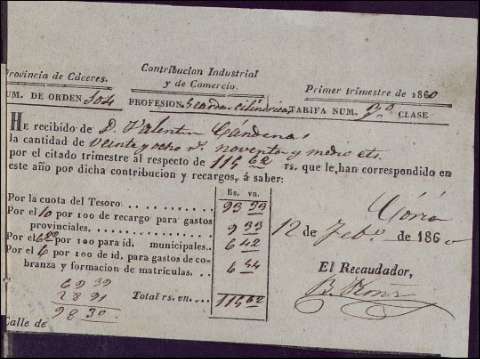 Provincia de Cáceres.
Contribucion Industrial
y de Comercio.
Primer trimestre de 1860
NUM. DE ORDEN 504 PROFESION cilindrica TARIFA NUM. CLASE
HE recibido de D. Valentin Cárdenas
la cantidad de veinte y ocho rs. noventa y medio cts.
por el citado trimestre al respecto de 115 62 rs. que le han correspondido en
este año por dicha contribucion y recargos, á saber:
Rs. vn.
Por la cuota del Tesoro 93 39
Por el 10 por 100 de recargo para gastos
provinciales. 9 33
Por el por 100 para id. municipales. 6 42
Por el 6 por 100 de id. para gastos de co-
branza y formacion de matrículas. 6 54
Total rs. vn. 115 62
69 39
28 91
98 30
Calle de
Coria
12 de Febo. de 1860
El Recaudador,